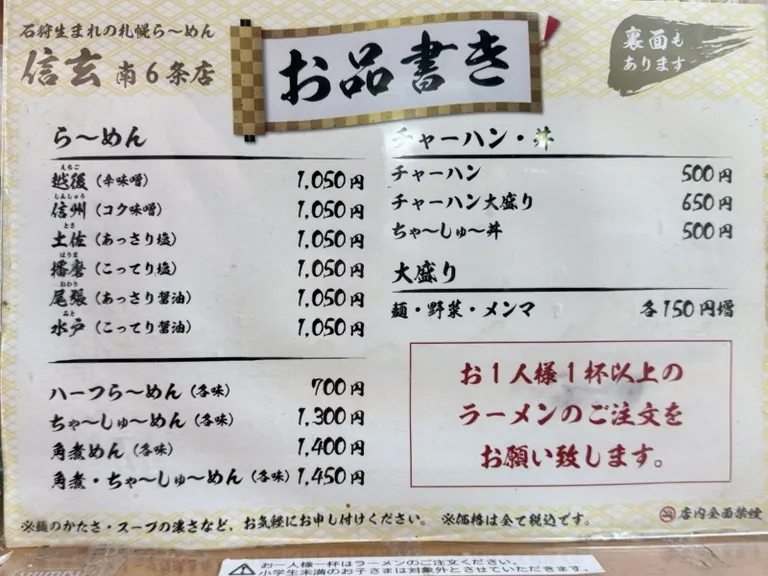 石狩生まれの札幌ら〜めん
信玄 南6条店
お品書き
裏面も
あります
ら〜めん
えちご
越後(辛味噌) 1,050円
しんしゅう
信州(コク味噌) 1,050円
とさ
土佐(あっさり塩) 1,050円
はりま
播磨(こってり塩) 1,050円
おわり
尾張(あっさり醤油) 1,050円
みと
水戸(こってり醤油) 1,050円
ハーフら〜めん(各味) 700円
ちゃ〜しゅ〜めん(各味) 1,300円
角煮めん(各味) 1,400円
角煮・ちゃ〜しゅ〜めん(各味) 1,450円
チャーハン・丼
チャーハン 500円
チャーハン大盛り 650円
ちゃ〜しゅ〜丼 500円
大盛り
麺・野菜・メンマ 各150円増
お1人様1杯以上の
ラーメンのご注文を
お願い致します。
※麺のかたさ・スープの濃さなど、お気軽にお申し付けください。 ※価格は全て税込です。
店内全面禁煙
お一人様一杯はラーメンのご注文ください。
小学生未満のお子さまは対象外とさせていただきます。